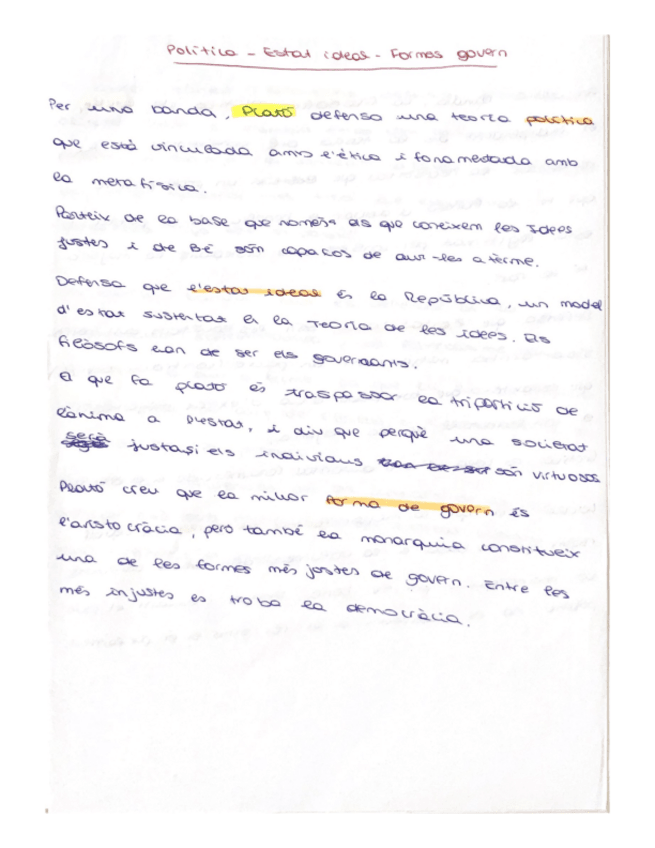 Política - Estat ideal - Formes govern
Per una banda, Plató defensa una teoria política
que està vinculada amb l'ètica i fonamedada amb
la metafísica.
Parteix de la base que només els que coneixem les Idees
justes i de Bé són capaços de dur-les a terme.
Defensa que l'estat ideal és la República, un model
d'estat sustentat en la Teoria de les idees. Els
filòsofs han de ser els governants.
El que fa plató és traspassar la tripartició de
l'ànima a l'estat, i diu que perquè una societat
serà justa si els individus són virtuosos
Plató creu que la millor forma de govern és
l'aristocràcia, però també la monarquia constitueix
una de les formes més justes de govern. Entre les
més injustes es troba la democràcia.